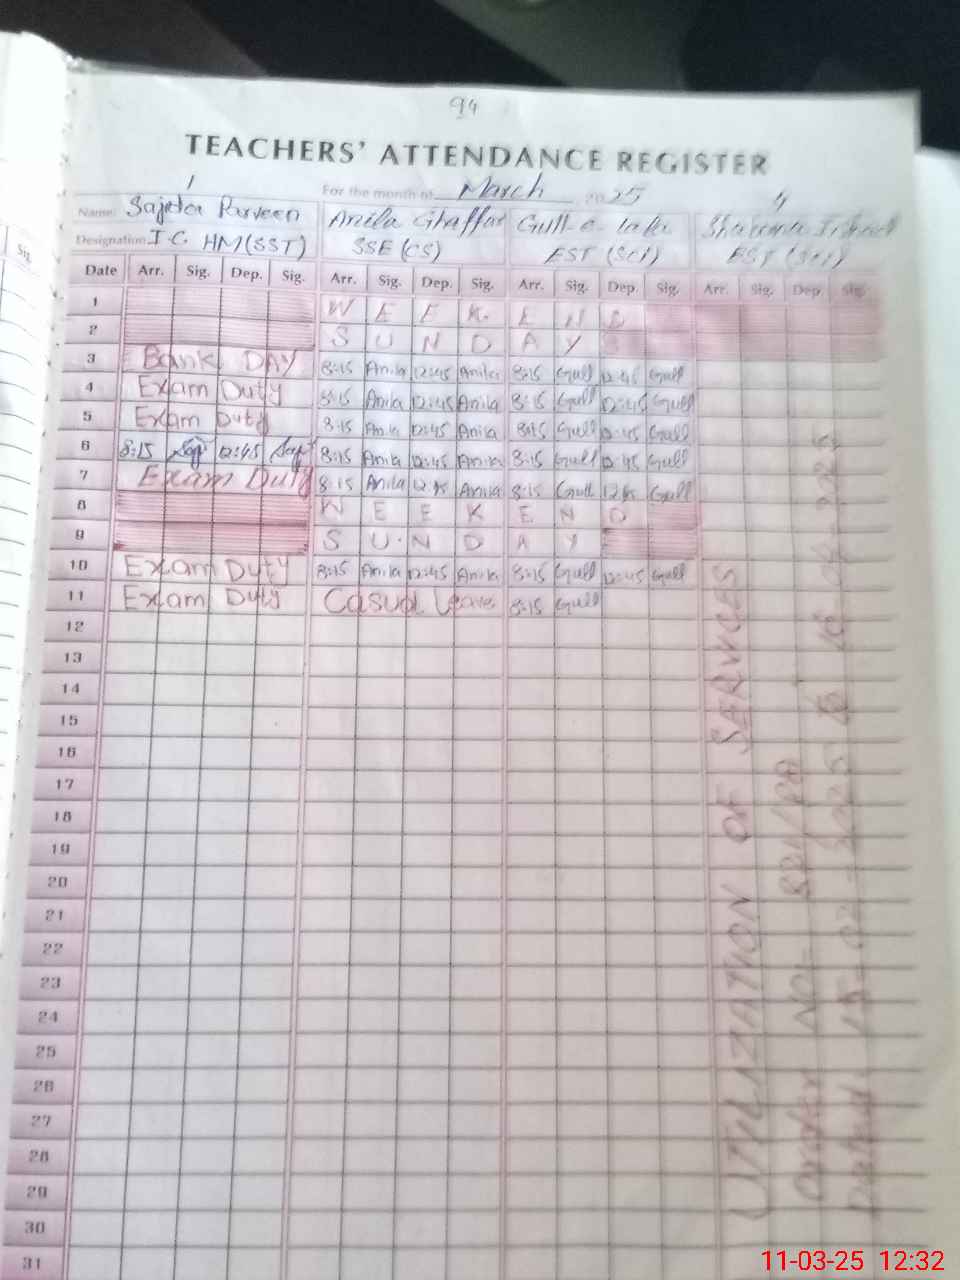 94
TEACHERS' ATTENDANCE REGISTER
For the month of March 2025
1 4
Name: Sajida Parveen Anila Ghaffar Gull-e- lala
Designation I-C HM(SST) SSE (CS) EST (Sci) EST (Sci)
Date Arr. Sig. Dep. Sig. Arr. Sig. Dep. Sig. Arr. Sig. Dep. Sig. Arr. Sig. Dep. Sig.
1 W E E K E N D
2 S U N D A Y
3 Bank DAY 8:15 Anila 12:45 Anila 8:15 Gull 12:45 Gull
4 Exam Duty 8:15 Anila 12:45 Anila 8:15 Gull 12:45 Gull
5 Exam Duty 8:15 Anila 12:45 Anila 8:15 Gull 12:45 Gull
6 8:15 12:45 8:15 Anila 12:45 Anila 8:15 Gull 12:45 Gull
7 Exam Duty 8:15 Anila 12:45 Anila 8:15 Gull 12:45 Gull
8 W E E K E N D
9 S U N D A Y
10 Exam Duty 8:15 Anila 12:45 Anila 8:15 Gull 12:45 Gull
11 Exam Duty Casual Leave 8:15 Gull
12
13
14
15
16
17
18
19
20
21
22
23
24
25
26
27
28
29
30
31
UTILIZATION OF SERVICES
Order NO=
Dated. 15-02-2025 to
Sig.
11-03-25 12:32